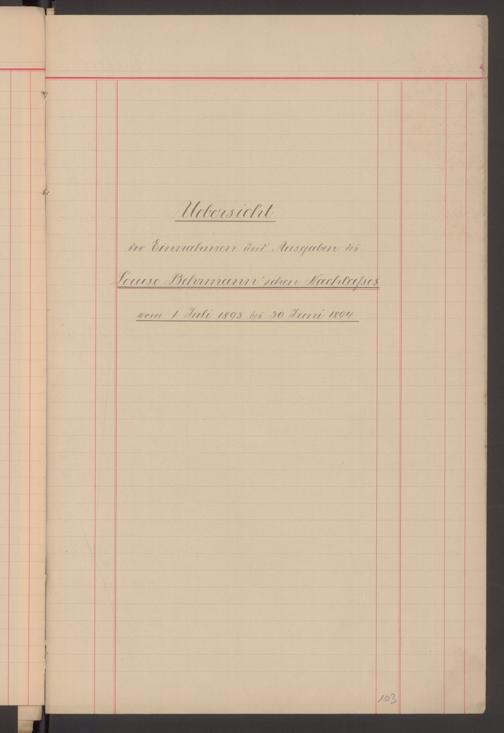 Uebersicht
der Einnahmen und Ausgaben des
Louise Behrmann'schen Nachlaßes
vom 1 Juli 1893 bis 30 Juni 1894
103